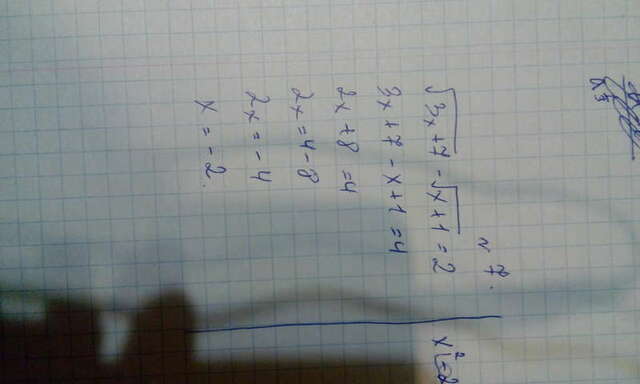 a⁵
№ 7.
√3x+7 - √x+1 = 2
3x+7 - x+1 = 4
2x+8 = 4
2x = 4-8
2x = -4
x = -2.
x² = 2